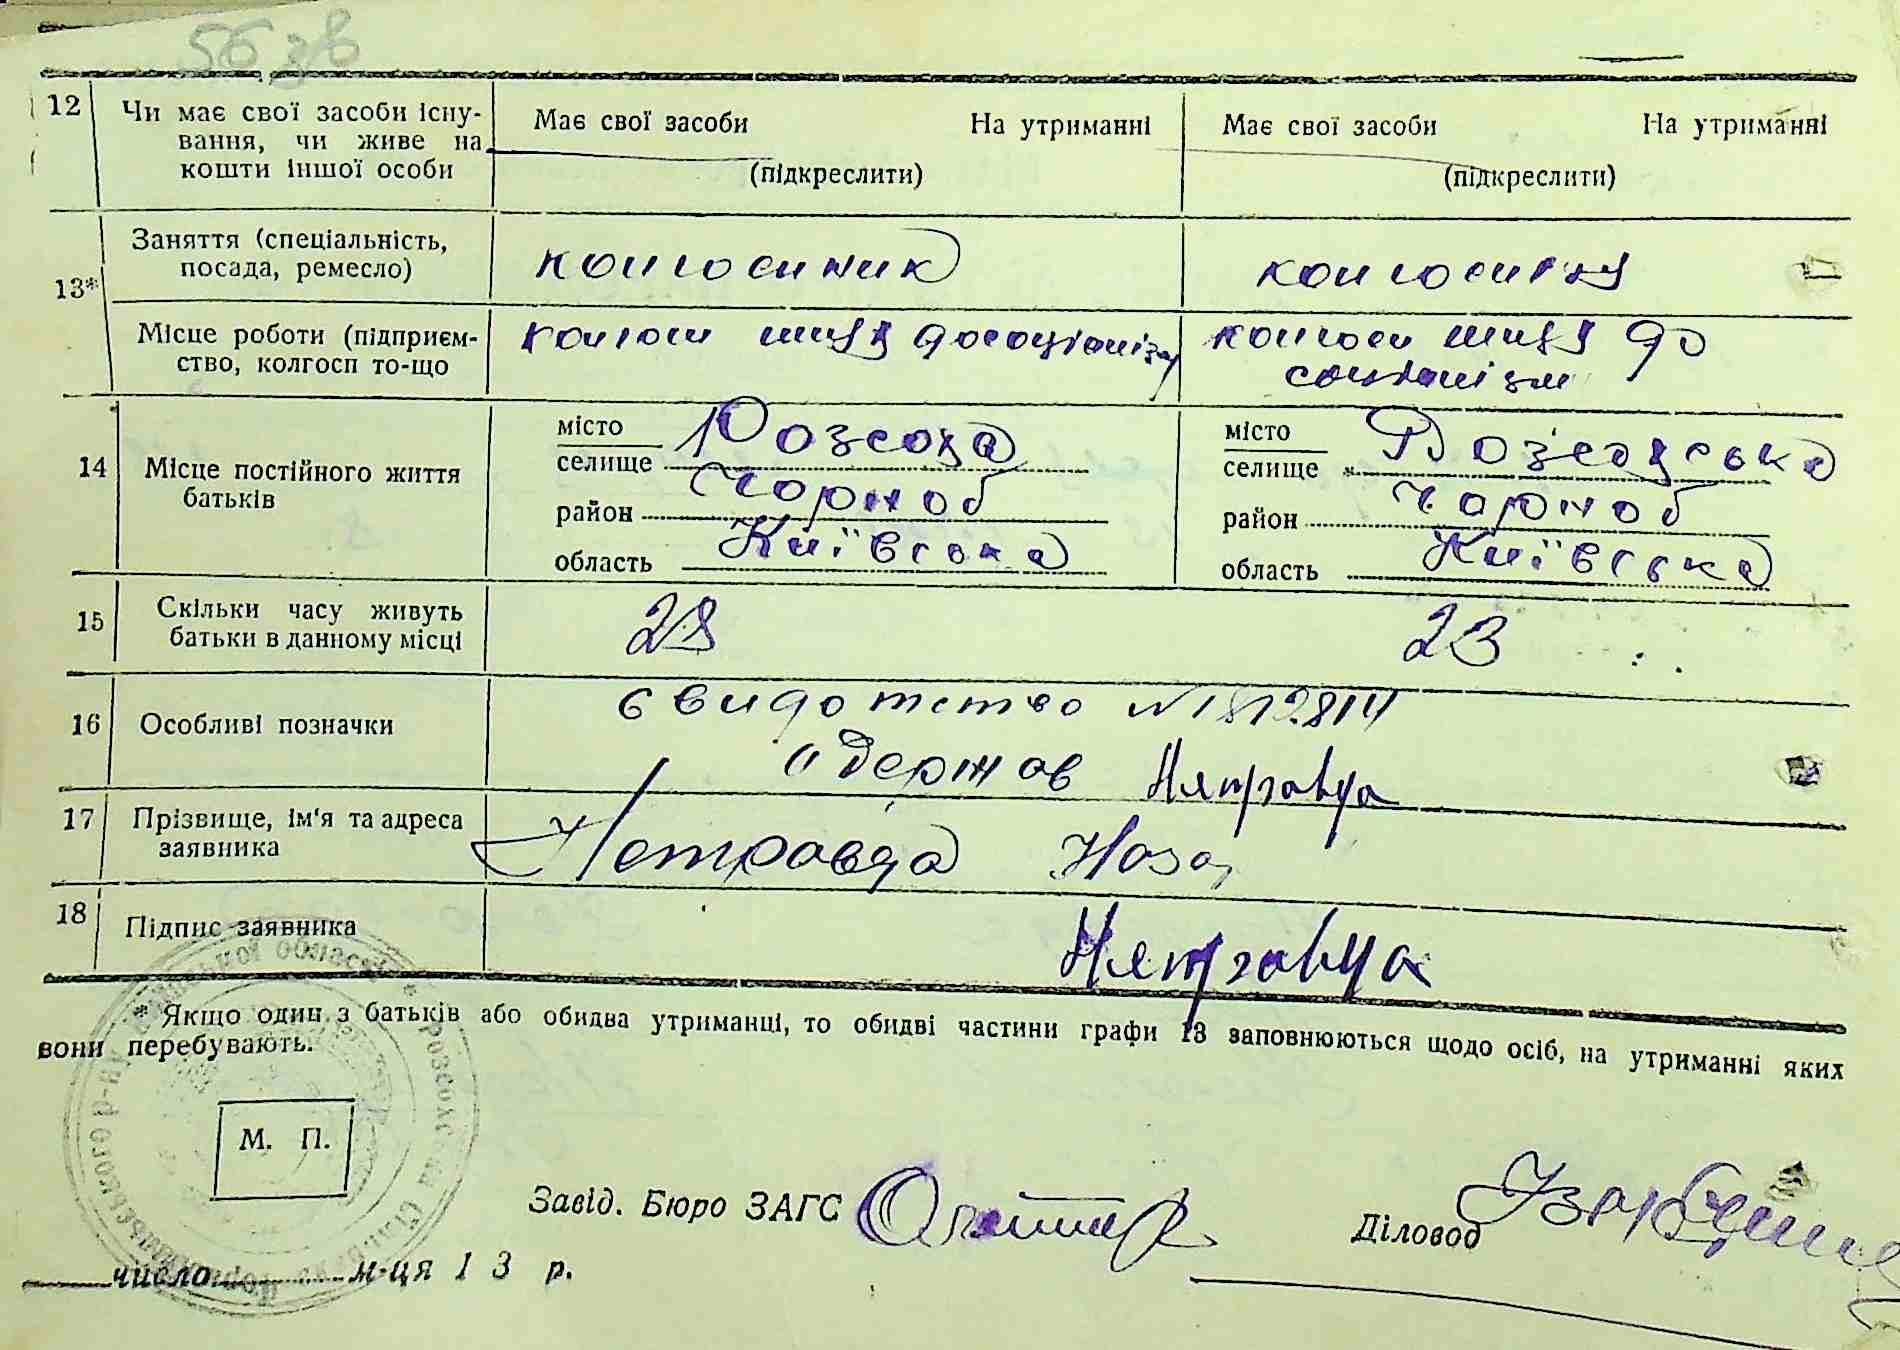 56 зв
12 Чи має свої засоби існу-
вання, чи живе на
кошти іншої особи
Має свої засоби На утриманні
(підкреслити)
Має свої засоби На утриманні
(підкреслити)
13*
Заняття (спеціальність,
посада, ремесло)
колгоспник
колгоспниця
Місце роботи (підприєм-
ство, колгосп то-що
колгосп шлях до соціалізму
колгосп шлях до
соціалізм
14 Місце постійного життя
батьків
місто
селище Розсоха
район Чорноб
область Київська
місто
селище Розсохська
район Чорноб
область Київська
15 Скільки часу живуть
батьки в данному місці
28
23
16 Особливі позначки
свидотство № 1812814
одержав Няправда
17 Прізвище, ім'я та адреса
заявника
Неправда Наза
18 Підпис заявника
Няправда
* Якщо один з батьків або обидва утриманці, то обидві частини графи 13 заповнюються щодо осіб, на утриманні яких
вони перебувають.
М. П.
Завід. Бюро ЗАГС
Діловод
число м-ця 1 3 р.